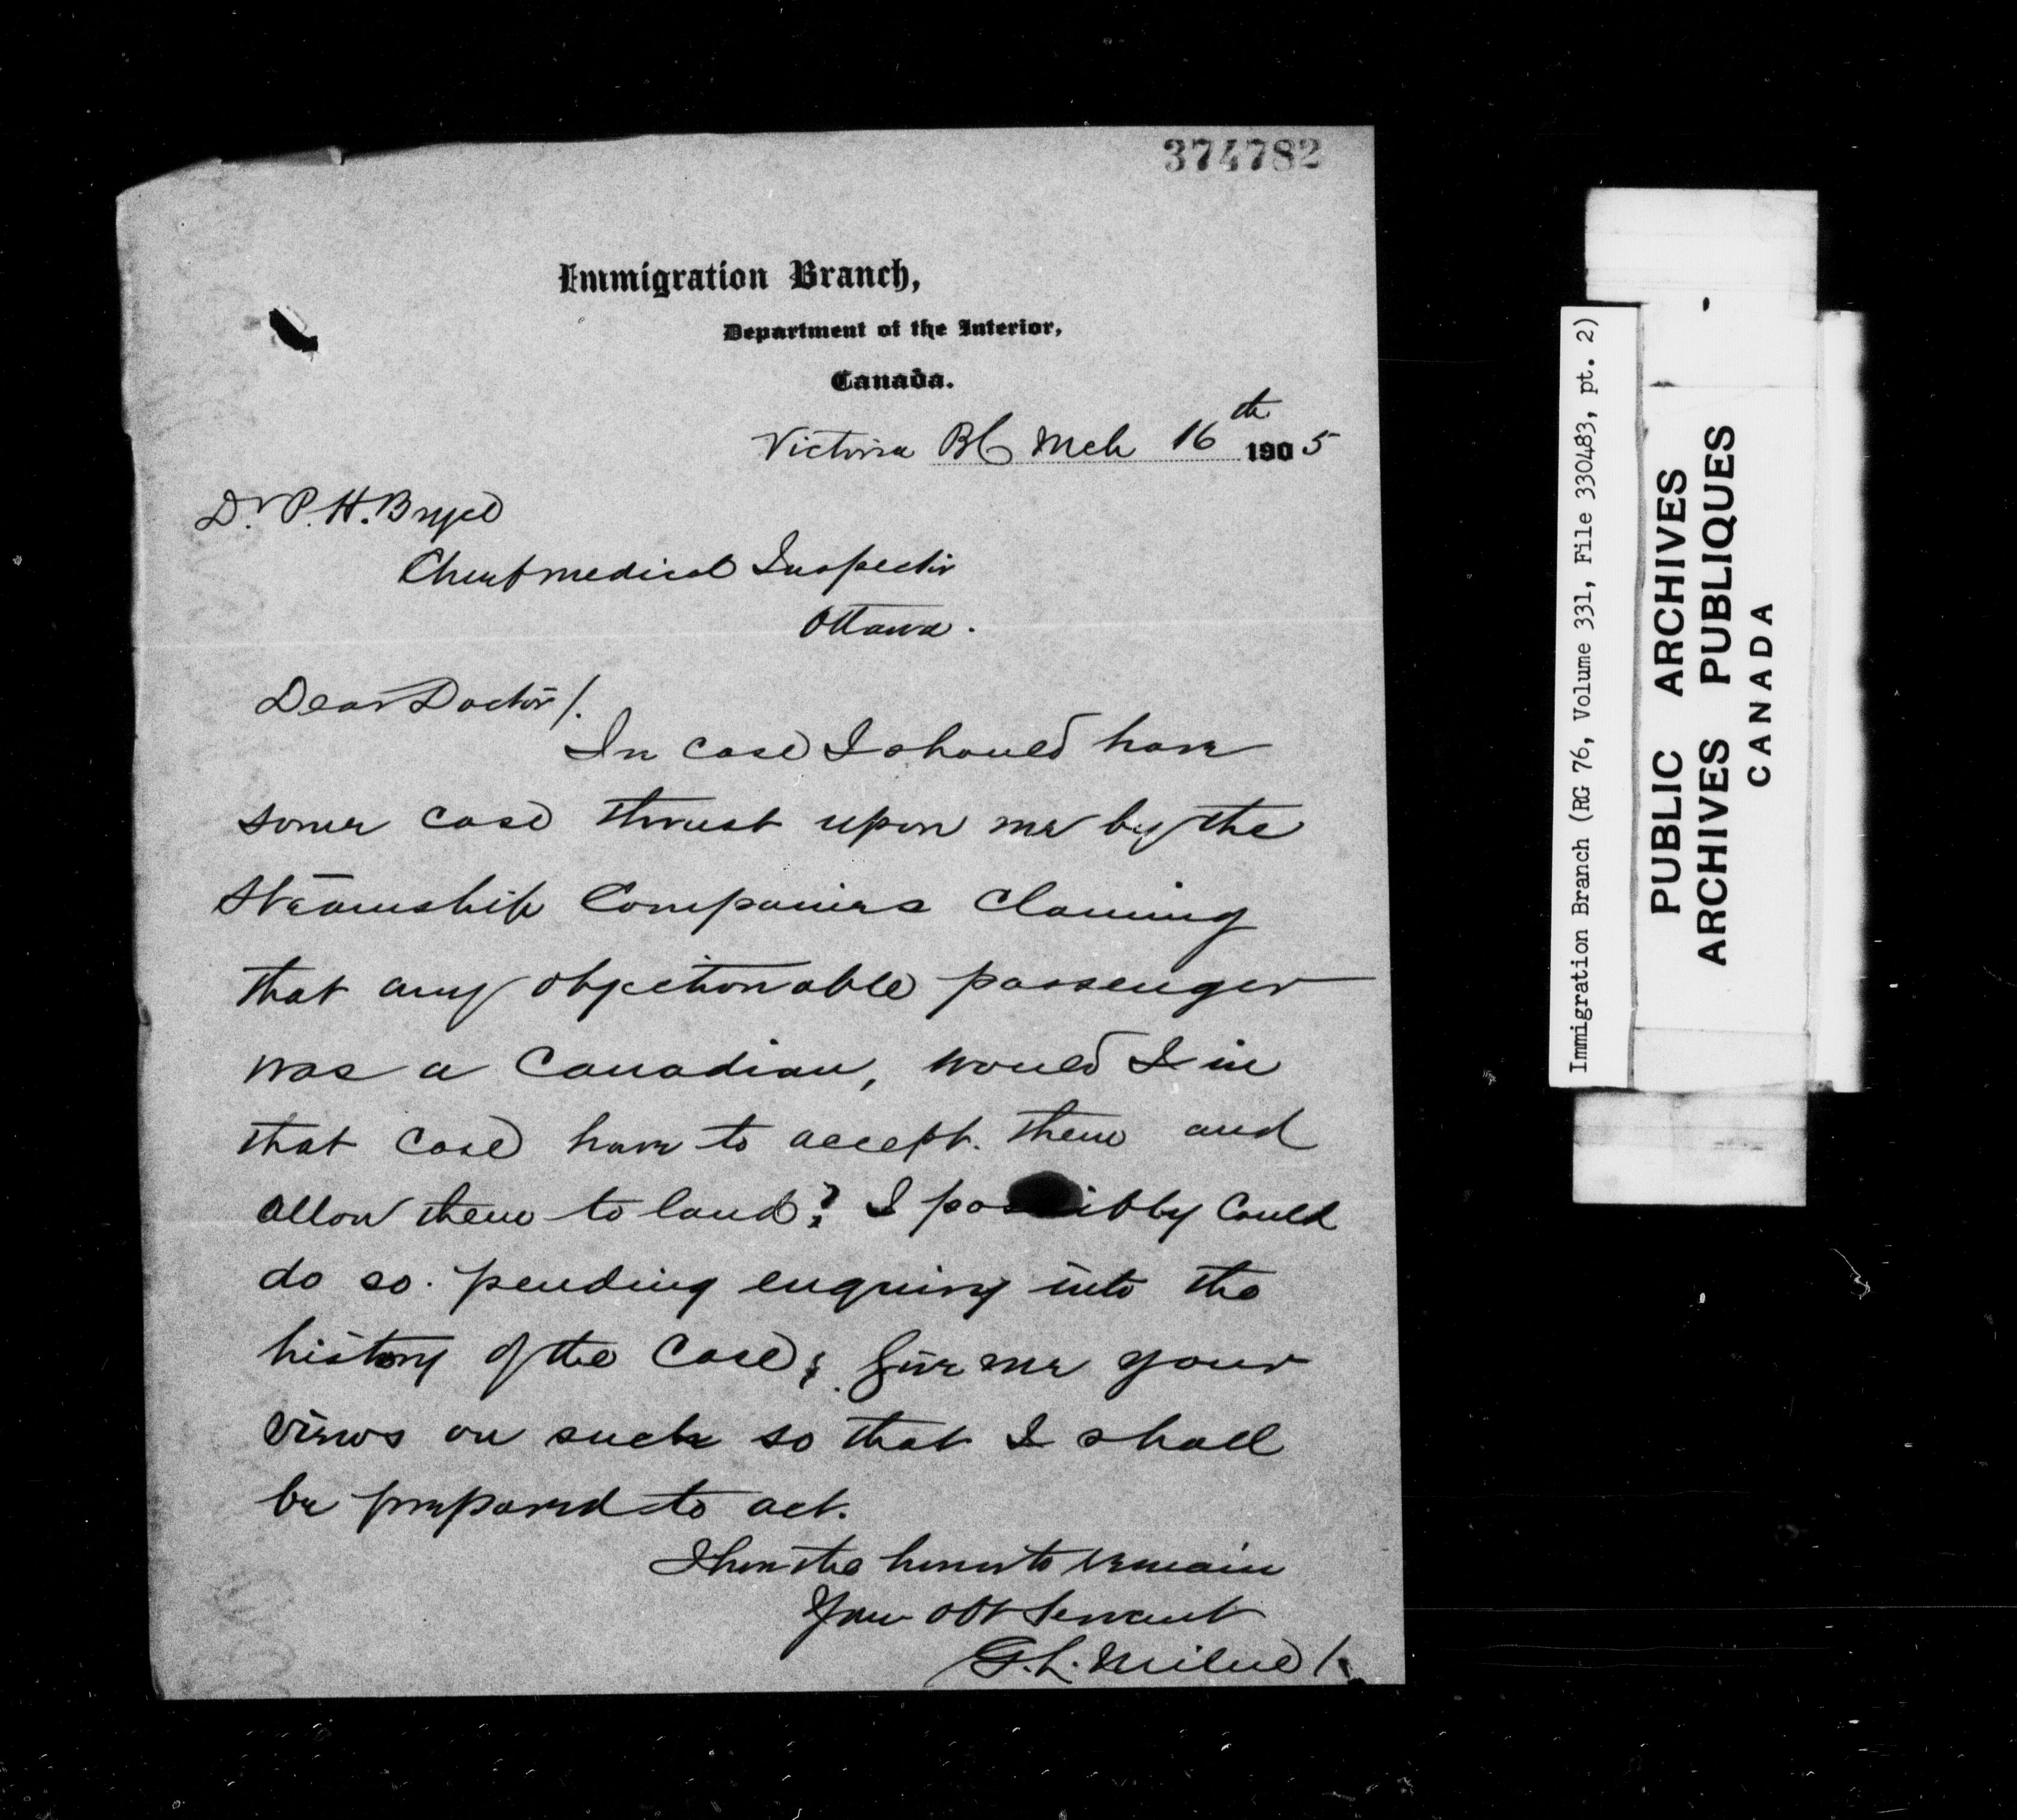 374782
Immigration Branch,
Department of the Interior,
Canada.
Victoria BC Mch 16th 1905
Dr. P. H. Bryce
Chief medical Inspector
Ottawa.
Dear Doctor/.
In case I should have
some case thrust upon me by the
Steamship Companies claming
that any objectionable passenger
was a Canadian, would I in
that case have to accept. them and
allow them to land? I possibly could
do so. pending enquiry into the
history of the case; Give me your
views on such so that I shall
be prepared to act.
I have the honor to remain
Your obt Servant
G. L. Milne
Immigration Branch (RG 76, Volume 331, File 330483, pt. 2)
PUBLIC ARCHIVES
ARCHIVES PUBLIQUES
CANADA